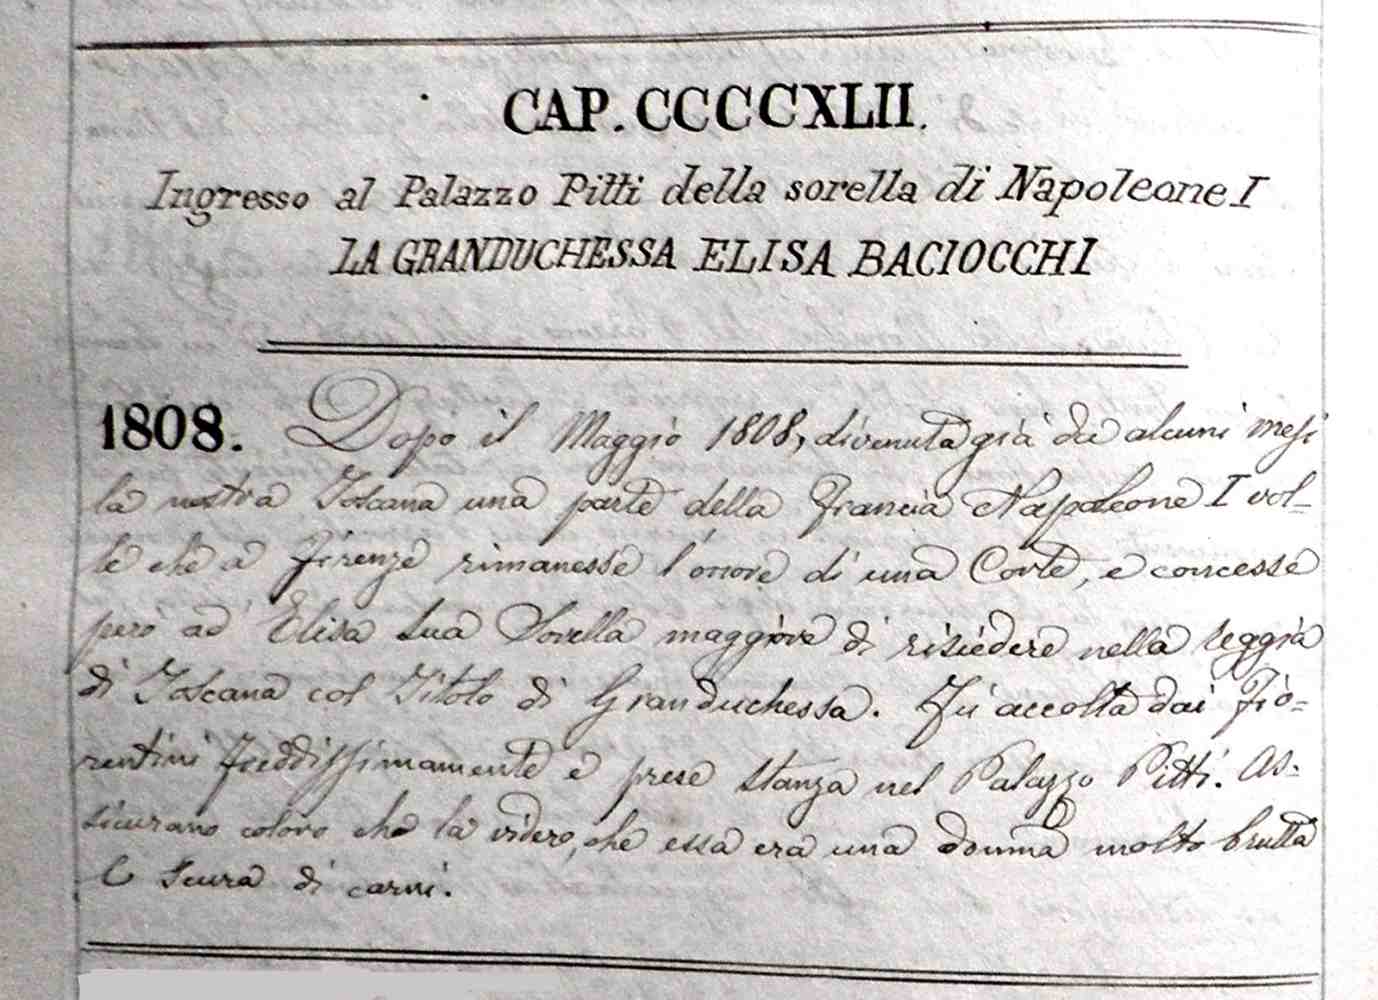 CAP. CCCCXLII.
Ingresso al Palazzo Pitti della sorella di Napoleone I
LA GRANDUCHESSA ELISA BACIOCCHI
1808. Dopo il Maggio 1808, divenuta già da alcuni mesi
la nostra Toscana una parte della Francia Napoleone I vol-
le che a Firenze rimanesse l'onore di una Corte, e concesse
però ad Elisa sua Sorella maggiore di risiedere nella reggia
di Toscana col Titolo di Granduchessa. Fù accolta dai Fio=
rentini freddissimamente e prese stanza nel Palazzo Pitti. As-
sicurano coloro che la videro, che essa era una donna molto brutta
e scura di carni.